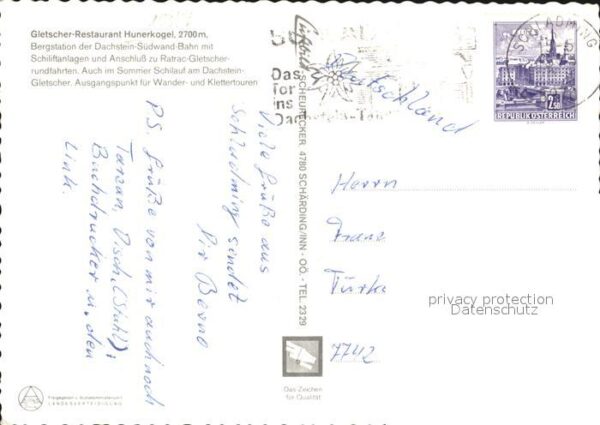 Gletscher-Restaurant Hunerkogel, 2700 m,
Bergstation der Dachstein-Südwand-Bahn mit
Schiliftanlagen und Anschluß zu Ratrac-Gletscher-
rundfahrten. Auch im Sommer Schilauf am Dachstein-
Gletscher. Ausgangspunkt für Wander- und Klettertouren
Das
Tor
ins
Dachstein-
SCHLADMING
2.50
REPUBLIK ÖSTERREICH
Deutschland
Viele Grüße aus
Schladming sendet
Dir
PS. Grüße von mir auch noch
Tarzan,
Buchdrucker u. den
Link.
SCHEURECKER, 4780 SCHÄRDING/INN - OÖ. - TEL. 2329
Herrn
Franc
Türka
7742
privacy protection
Datenschutz
Das Zeichen
für Qualität
LANDESVERTEIDIGUNG